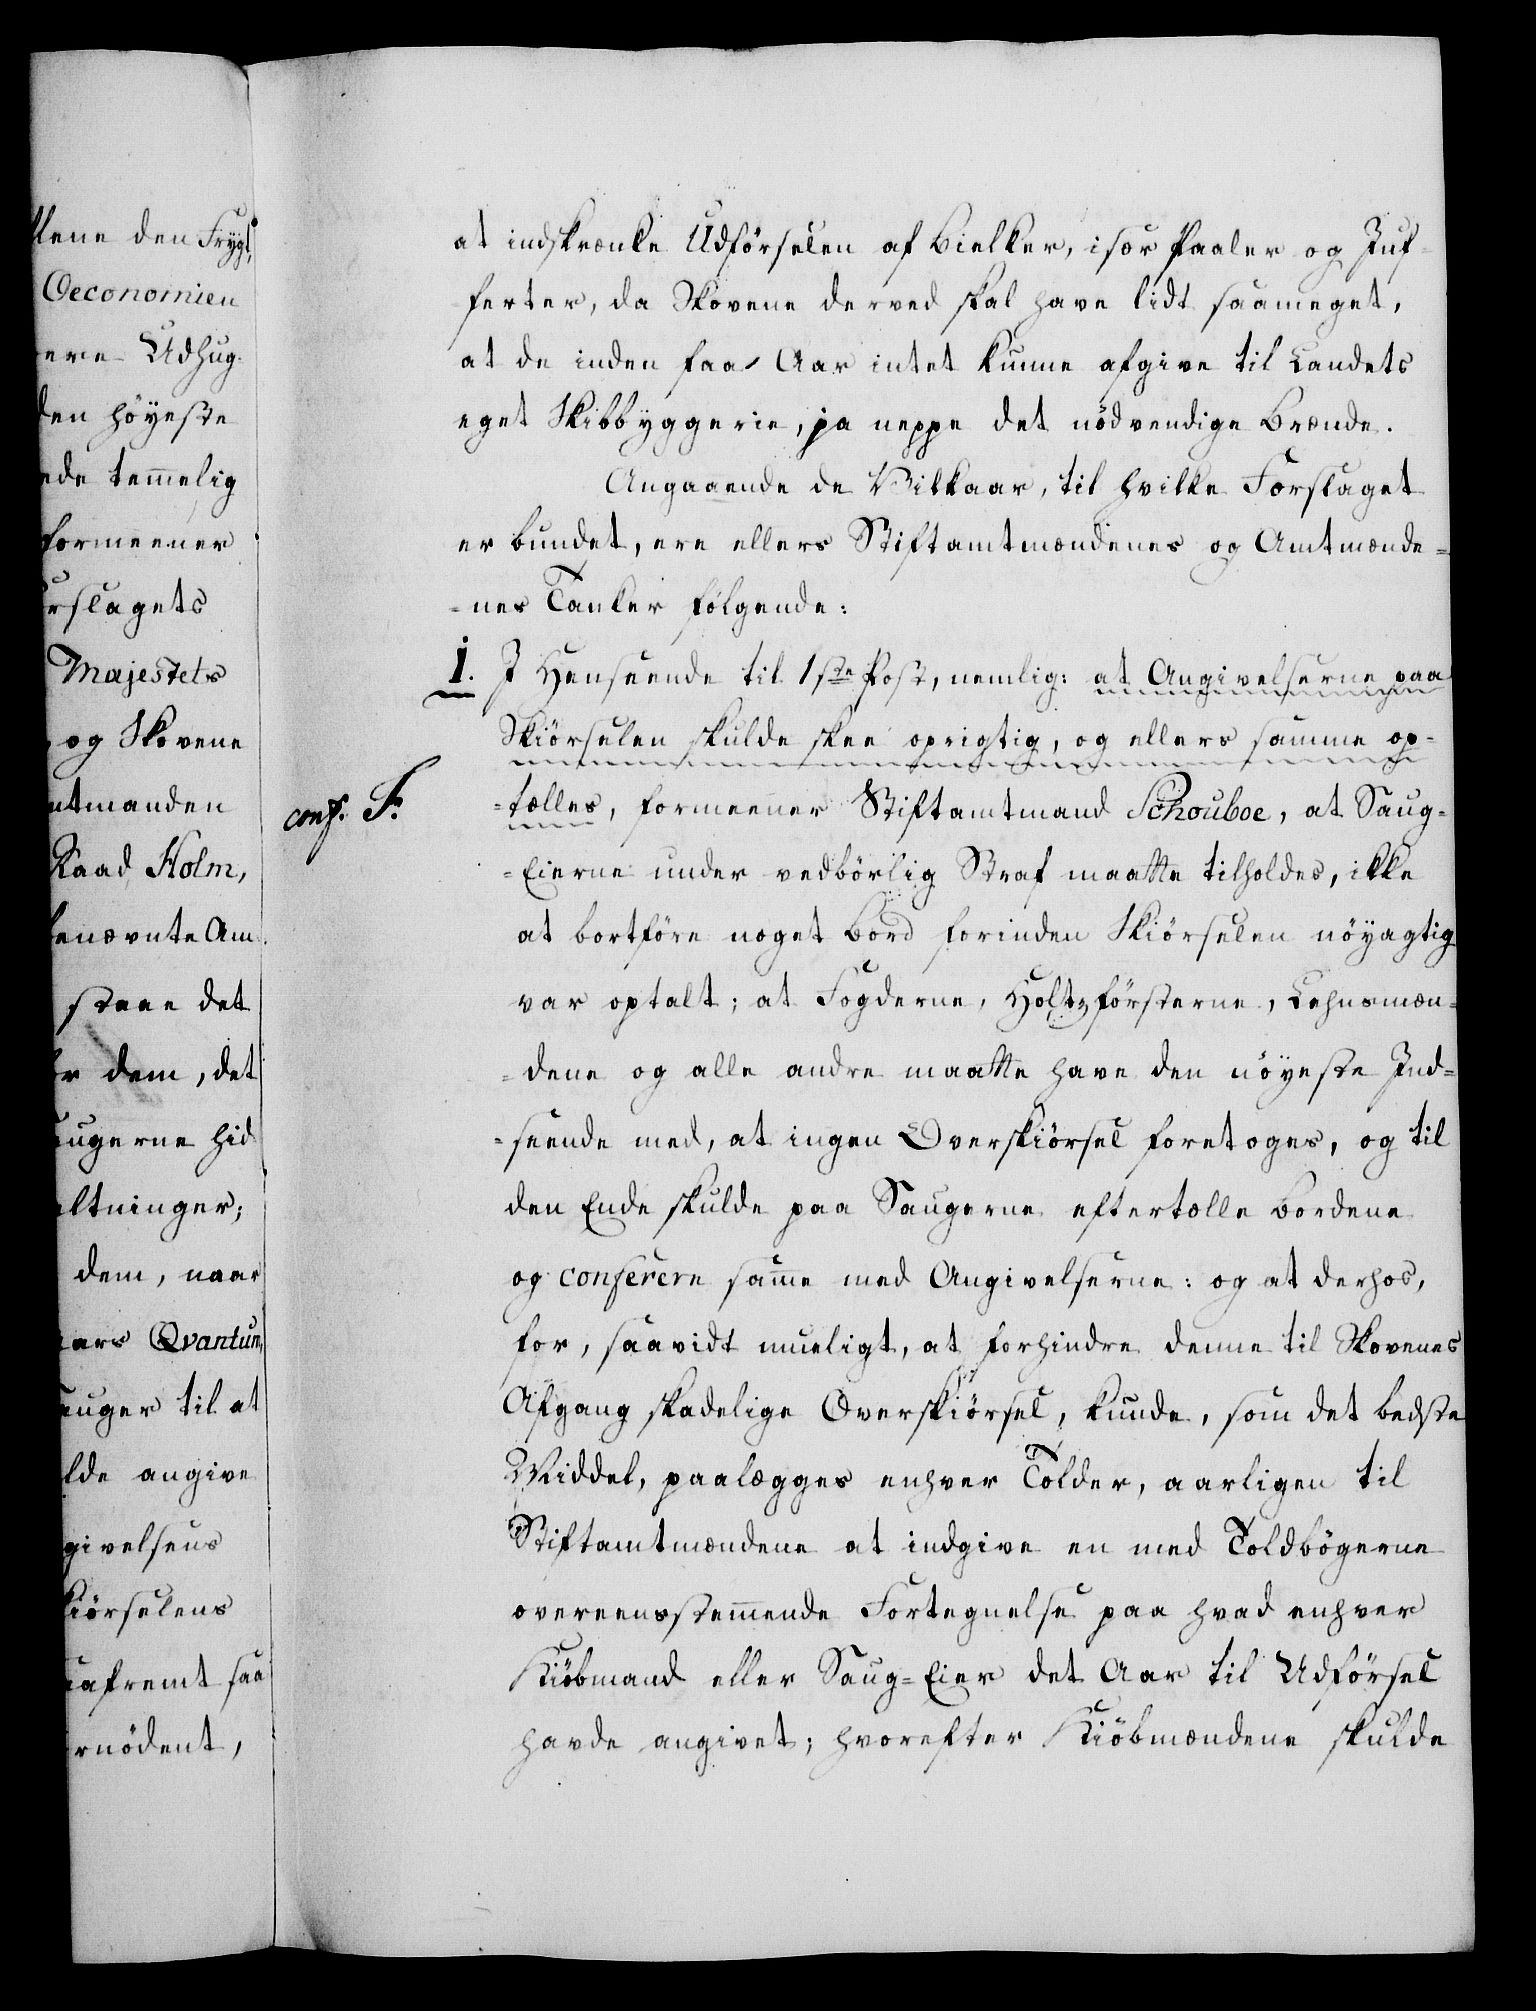 llene den Frygt,
Oeconomien
ere Udhug-
den höyeste
ede temmelig
formeener
orslagets
Majestets
og Skovene
mtmanden
Raad Holm,
benævnte Am-
staae det
or dem, det
augerne hid
altninger;
dem, naar
aars Qvantum,
auger til at
lde angive
givelsens
kiörselens
uafremt saa
rnödent,
at indskrænke Udförselen af Bielker, især Paaler og Juf-
ferter, da Skovene derved skal have lidt saameget,
at de inden faa Aar intet kunne afgive til Landets
eget Skibbyggerie, ja neppe det nödvendige Brænde.
Angaaende de Vilkaar, til hvilke Forslaget
er bundet, ere ellers Stiftamtmændenes og Amtmænde=
=nes Tanker fölgende:
1. I Henseende til 1ste Post, nemlig: at Angivelserne paa
Skiörselen skulde skee oprigtig, og ellers samme op=
conf. F. =tælles, formeener Stiftamtmand Schouboe, at Saug=
=Eierne under vedbörlig Straf maatte tilholdes, ikke
at bortföre noget Bord forinden Skiörselen nöyagtig
var optalt; at Fogderne, Holtzförsterne, Lehnsmæn=
=dene og alle andre maatte have den nöyeste Ind=
=seende med, at ingen Overskiörsel foretoges, og til
den Ende skulde paa Saugerne eftertælle Bordene
og conferere samme med Angivelserne: og at derhos,
for, saavidt mueligt, at forhindre denne til Skovenes
Afgang skadelige Overskiörsel, kunde, som det bedste
Middel, paalægges enhver Tolder, aarligen til
Stiftamtmændene at indgive en med Toldbögerne
overeensstemmende Fortegnelse paa hvad enhver
Kiöbmand eller Saug=Eier det Aar til Udförsel
havde angivet; hvorefter Kiöbmændene skulde